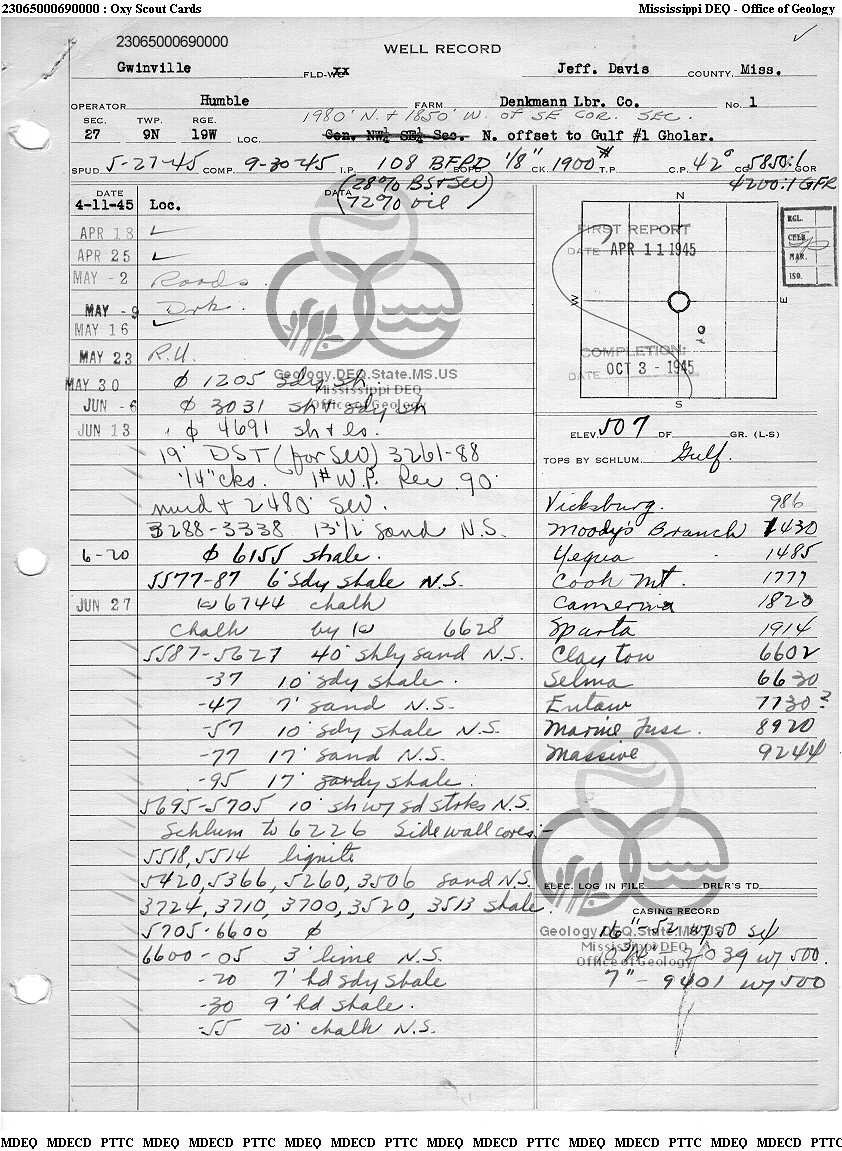 23065000690000 : Oxy Scout Cards Mississippi DEQ - Office of Geology
23065000690000
WELL RECORD
Gwinville FLD-W Jeff. Davis COUNTY, Miss.
OPERATOR Humble FARM Denkmann Lbr. Co. No. 1
1980' N. + 1850' W. of SE COR. SEC.
SEC. TWP. RGE.
27 9N 19W LOC. Cen. NW¼ SE¼ Sec. N. offset to Gulf #1 Gholar.
SPUD 5-27-45 COMP. 9-30-45 I.P. 108 BFPD 1/8" CK. 1900# T.P. C.P. 42° CG 5850:1 GOR
(28% BS+SW) 4200:1 GFR
72% oil)
DATE DATA
4-11-45 Loc.
APR 18 ✓
APR 25 ✓
MAY -2 Roads.
MAY -9 Drk.
MAY 16 ✓
MAY 23 R.U.
MAY 30 ϕ 1205 sdy sh.
JUN -6 ϕ 3031 sh + sdy sh
JUN 13 ϕ 4691 sh + ls.
19' DST (for SW) 3261-88
1/4" cks. 1# W.P. Rec 90'
mud + 2480' SW.
3288-3338 13½' sand N.S.
6-20 ϕ 6155 shale.
5577-87 6' sdy shale N.S.
JUN 27 6744 chalk
Chalk by 6628
5587-5627 40' shly sand N.S.
-37 10' sdy shale.
-47 7' sand N.S.
-57 10' sdy shale N.S.
-77 17' sand N.S.
-95 17' sandy shale.
5695-5705 10' sh w/ sd strks N.S.
Schlum to 6226 Sidewall cores:-
5518, 5514 lignite
5420, 5366, 5260, 3506 sand N.S.
3724, 3710, 3700, 3520, 3513 shale.
5705-6600 ϕ
6600-05 3' lime N.S.
-20 7' hd sdy shale
-30 9' hd shale.
-55 20' chalk N.S.
N
W E
S
FIRST REPORT
DATE APR 11 1945
COMPLETION:
DATE OCT 3 - 1945
RGL.
CHEM
MAR.
ISO.
ELEV. 507 DF. GR. (L-S)
TOPS BY SCHLUM. Gulf.
Vicksburg. 986
Moody's Branch 1430
Yegua 1485
Cook Mt. 1777
Camerina 1820
Sparta 1914
Clayton 6602
Selma 6630
Eutaw 7730?
Marine Tusc. 8920
Massive 9244
ELEC. LOG IN FILE DRLR'S TD
CASING RECORD
16" - 52 w/ 50 sx
10 3/4" - 2039 w/ 500.
7" - 9401 w/ 500
Geology.DEQ.State.MS.US
Mississippi DEQ
Office of Geology
Geology.DEQ.State.MS.US
Mississippi DEQ
Office of Geology
MDEQ MDECD PTTC MDEQ MDECD PTTC MDEQ MDECD PTTC MDEQ MDECD PTTC MDEQ MDECD PTTC MDEQ MDECD PTTC